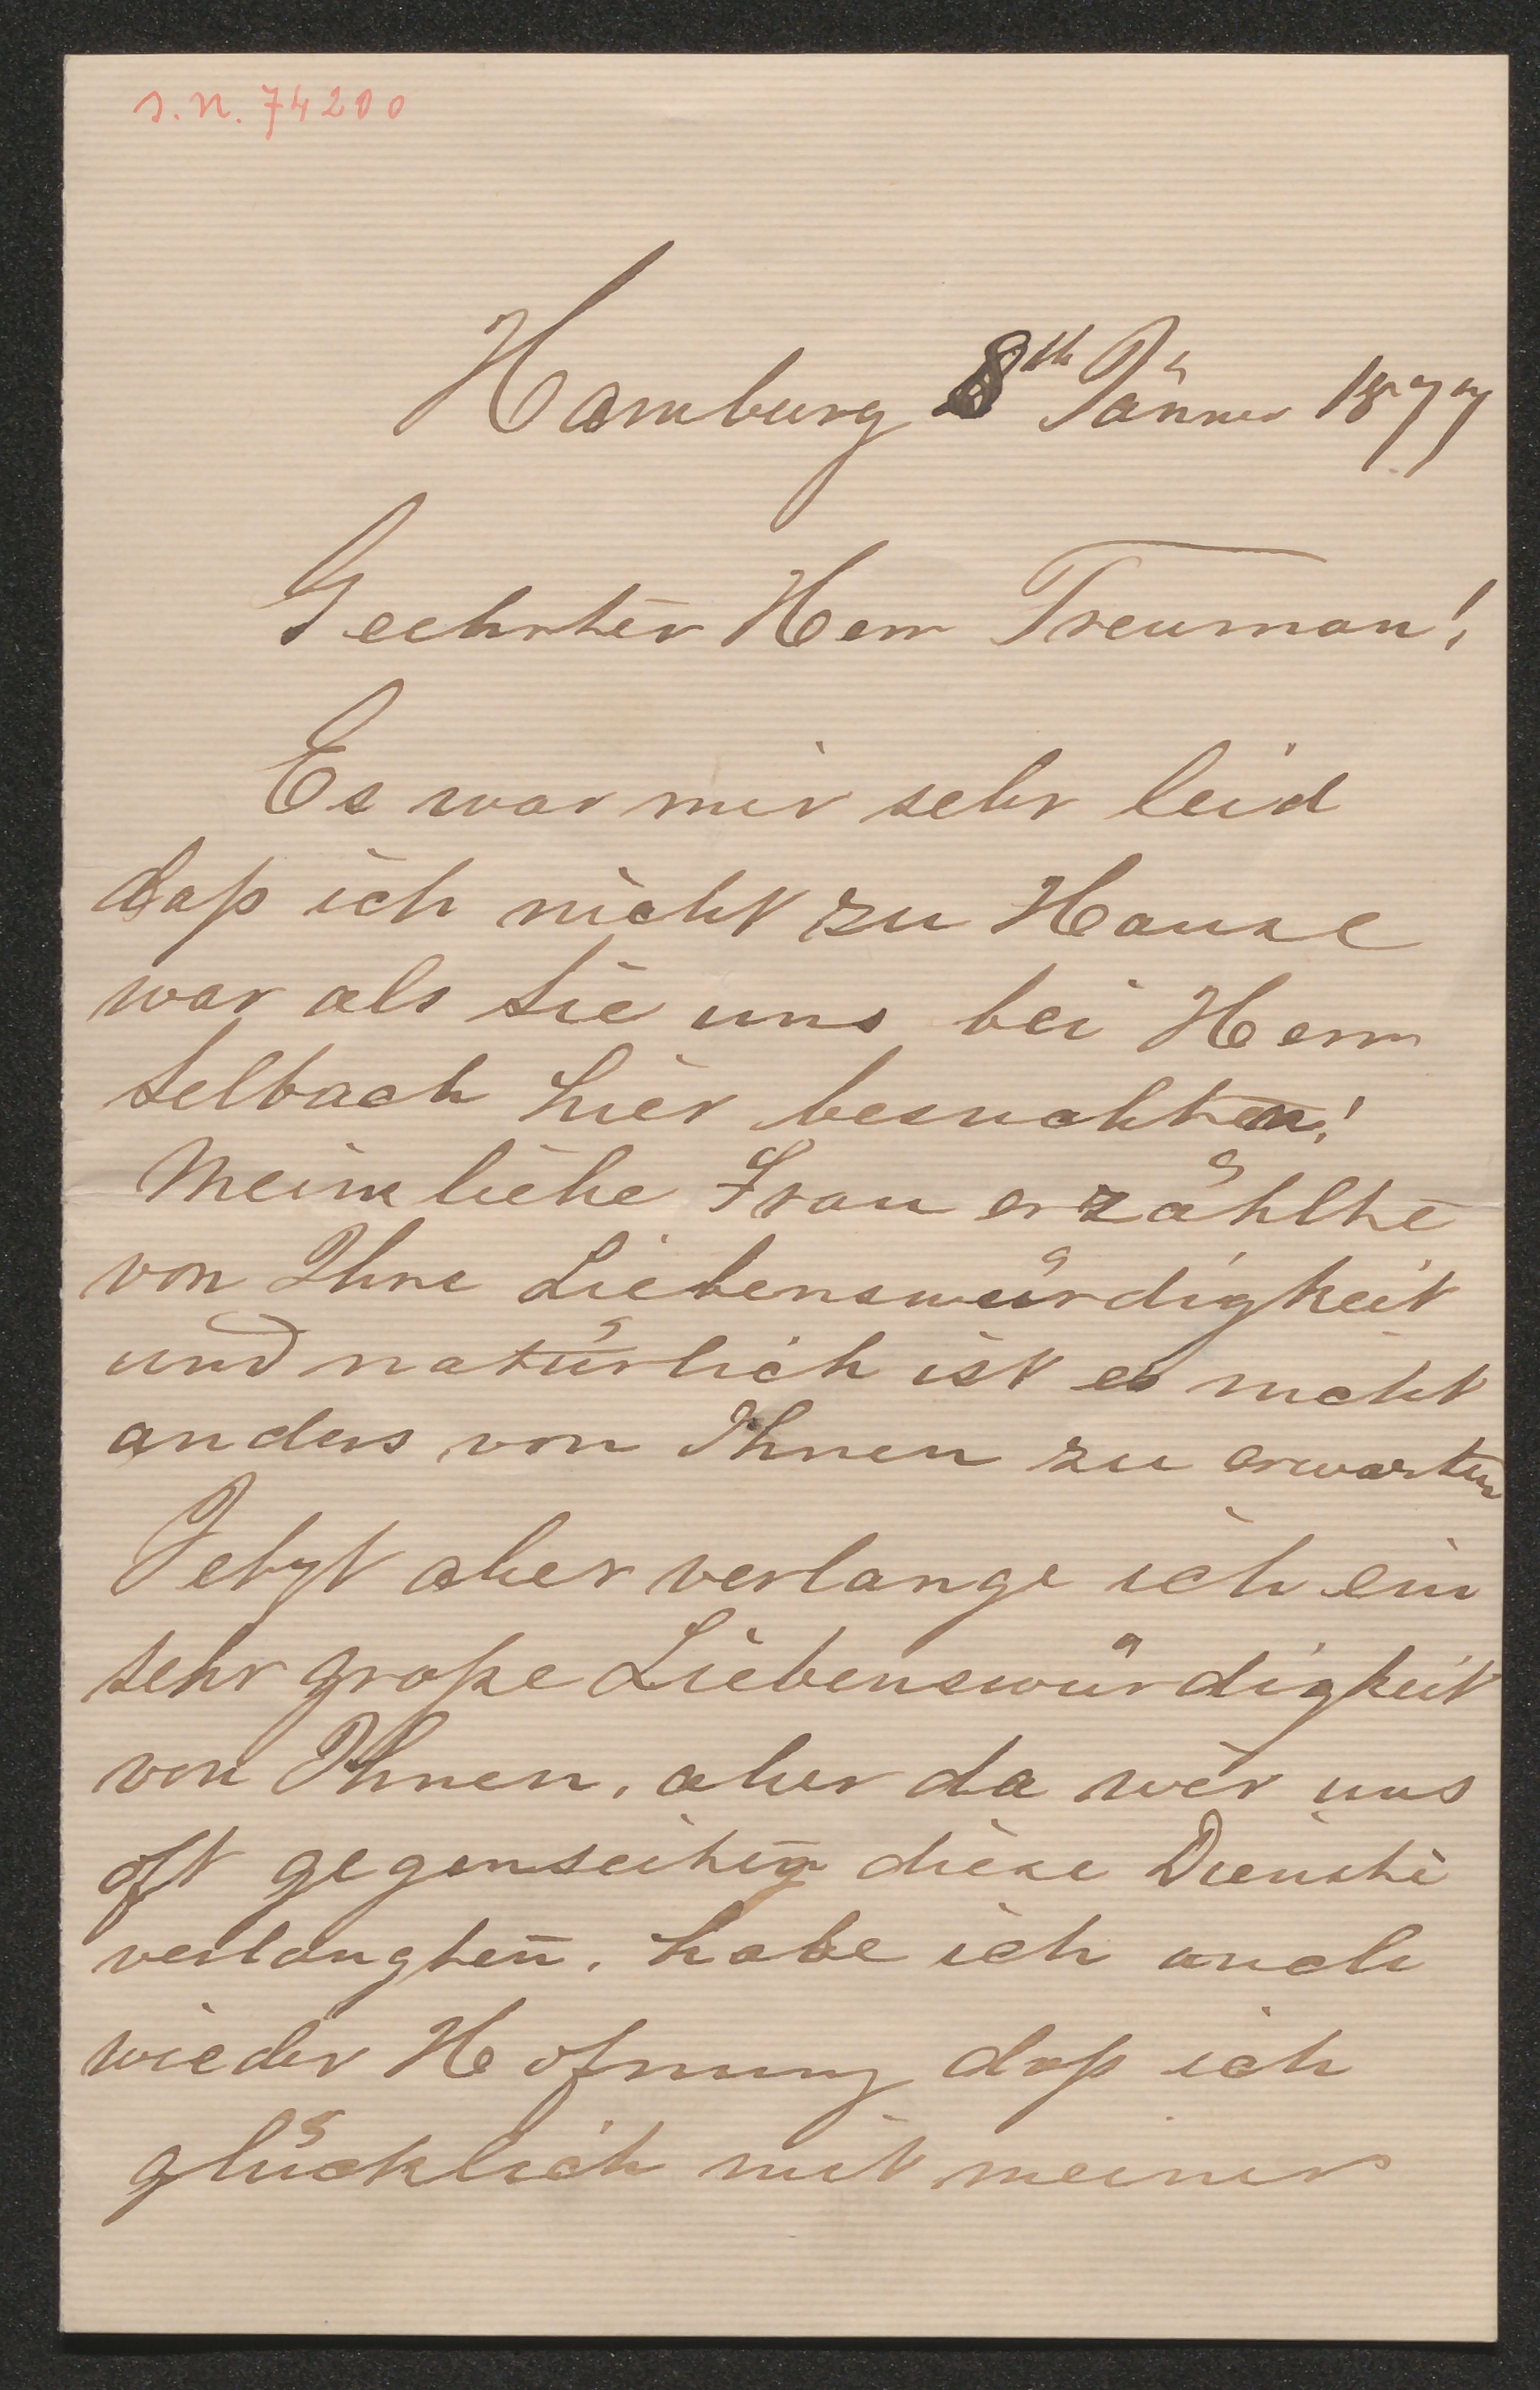 s.n. 74200
Hamburg 8th Jänner 1877
Geehrter Herr Treuman!
Es war mir sehr leid
daß ich nicht zu Hause
war als Sie uns bei Herrn
Selbach hier besuchten!
Meine liebe Frau erzählte
von Ihre Liebenswürdigkeit
und natürlich ist es nicht
anders von Ihnen zu erwarten
Jetzt aber verlange ich ein
sehr große Liebenswürdigkeit
von Ihnen, aber da wir uns
oft gegenseitig diese Dienste
verlangten, habe ich auch
wieder Hofnung daß ich
glücklich mit meiner